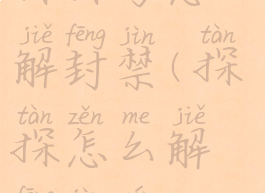 jiě fēng jìn tàn
解封禁（探
tàn zěn me jiě
探怎么解